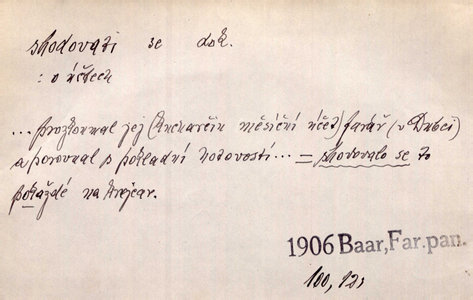 shodovati se dok.
: o účtech
... prozkoumal jej (kuchařčin měsíční účet) farář (v Dubči)
a porovnal s pokladní hotovostí... = shodovalo se to
pokaždé na krejcar.
1906 Baar, Far. pan.
100, 12